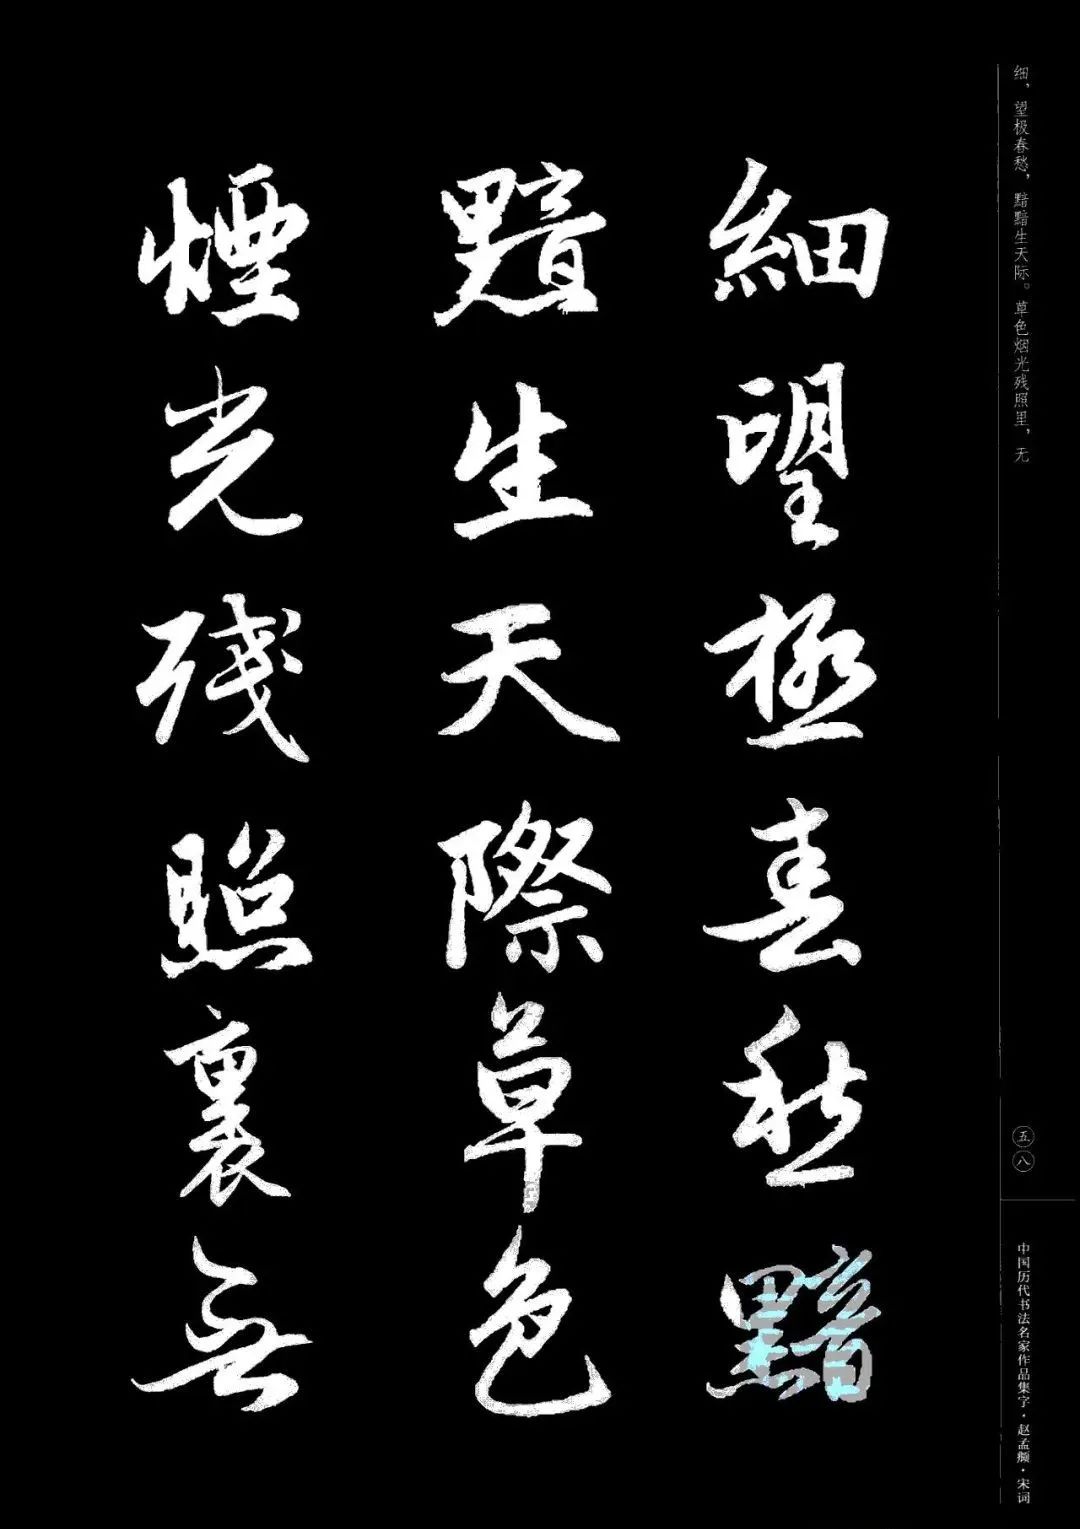 細望極春愁黯
黯生天際草色
煙光殘照裏無
细，望极春愁，黯黯生天际。草色烟光残照里，无
五八
中国历代书法名家作品集字·赵孟頫·宋词